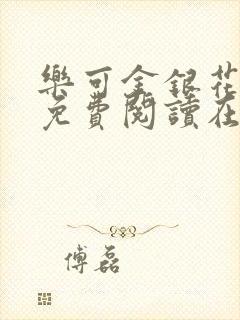 樂可金銀花
免費閱讀在
傅磊